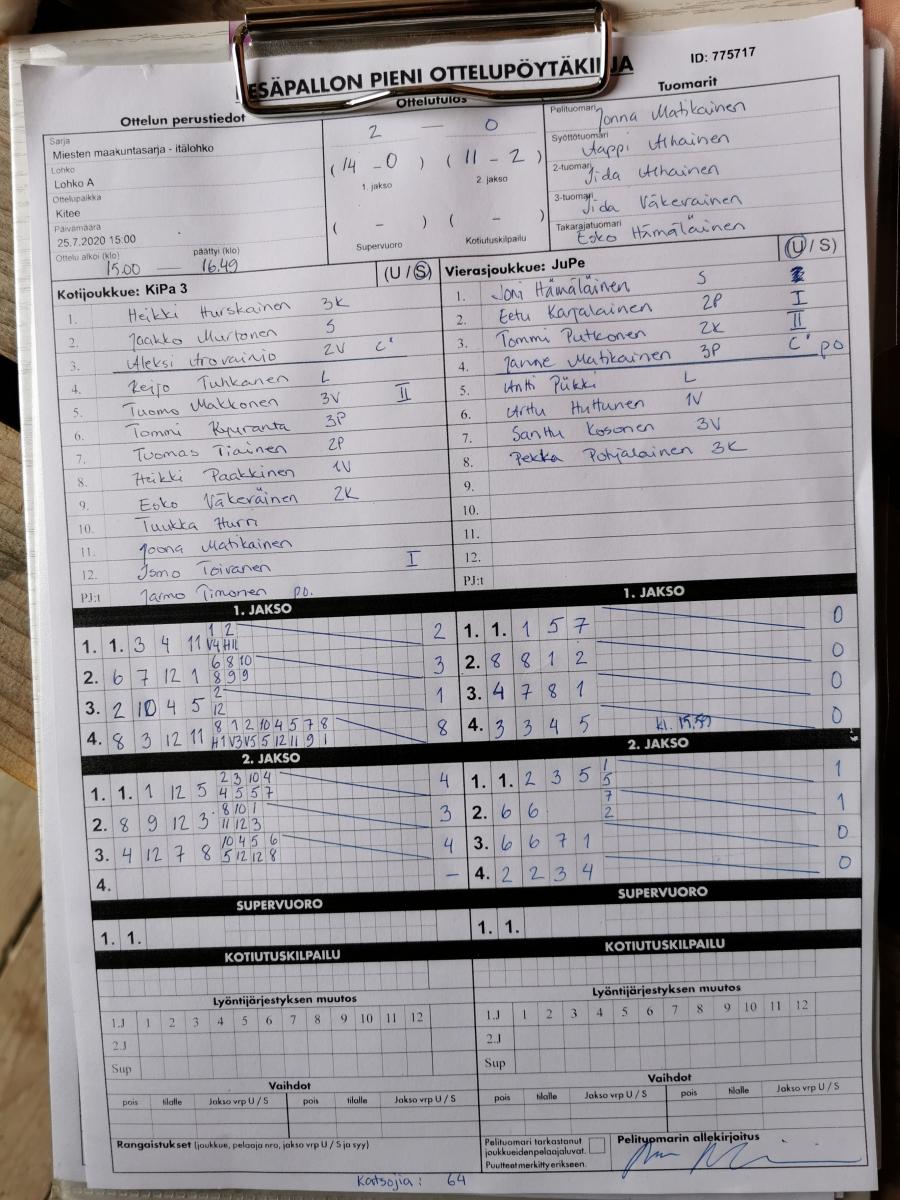 ESÄPALLON PIENI OTTELUPÖYTÄKI JA
ID: 775717
Ottelun perustiedot
Sarja
Miesten maakuntasarja - itälohko
Lohko
Lohko A
Ottelupaikka
Kitee
Päivämäärä
25.7.2020 15:00
Ottelu alkoi (klo) päättyi (klo)
15.00 — 16.49
Ottelutulos
2 — 0
(14 - 0) (11 - 2)
1. jakso 2. jakso
( - ) ( - )
Supervuoro Kotiutuskilpailu
Tuomarit
Pelituomari Jonna Matikainen
Syöttötuomari Aappi Alhainen
2-tuomari Iida Alhainen
3-tuomari Iida Väkeväinen
Takarajatuomari Esko Hämäläinen
Kotijoukkue: KiPa 3 (U / S)
1. Heikki Hurskainen 3K
2. Jaakko Murtonen S
3. Aleksi Arovainio 2V C'
4. Reijo Tuhkanen L
5. Tuomo Makkonen 3V II
6. Tommi Kyyranta 3P
7. Tuomas Tiainen 2P
8. Heikki Paakkinen 1V
9. Esko Väkeväinen 2K
10. Tuukka Hurri
11. Joona Matikainen
12. Ismo Toivanen I
PJ:t Jarmo Timonen po.
Vierasjoukkue: JuPe (U / S)
1. Joni Hämäläinen S
2. Eetu Karjalainen 2P I
3. Tommi Putkonen 2K II
4. Janne Matikainen 3P C' po
5. Antti Piikki L
6. Arttu Huttunen 1V
7. Santtu Kosonen 3V
8. Pekka Pohjalainen 3K
9.
10.
11.
12.
PJ:t
1. JAKSO
1 2
1. 1. 3 4 11 V4 H11 2
6 8 10
2. 6 7 12 1 8 9 9 3
2
3. 2 10 4 5 12 1
8 1 2 10 4 5 7 8
4. 8 3 12 11 H1 V3 V5 5 12 11 9 1 8
1. JAKSO
1. 1. 1 5 7 0
2. 8 8 1 2 0
3. 4 7 8 1 0
4. 3 3 4 5 kl. 15.59 0
2. JAKSO
2 3 10 4
1. 1. 1 12 5 4 5 5 7 4
8 10 1
2. 8 9 12 3 11 12 3 3
10 4 5 6
3. 4 12 7 8 5 12 12 8 4
4. –
2. JAKSO
1
1. 1. 2 3 5 5 1
7
2. 6 6 2 1
3. 6 6 7 1 0
4. 2 2 3 4 0
SUPERVUORO
1. 1.
SUPERVUORO
1. 1.
KOTIUTUSKILPAILU
KOTIUTUSKILPAILU
Lyöntijärjestyksen muutos
1.J 1 2 3 4 5 6 7 8 9 10 11 12
2.J
Sup
Lyöntijärjestyksen muutos
1.J 1 2 3 4 5 6 7 8 9 10 11 12
2.J
Sup
Vaihdot
pois tilalle Jakso vrp U / S pois tilalle Jakso vrp U / S
Vaihdot
pois tilalle Jakso vrp U / S pois tilalle Jakso vrp U / S
Rangaistukset (joukkue, pelaaja nro, jakso vrp U / S ja syy)
Pelituomari tarkastanut
joukkueiden pelaajaluvat.
Puutteet merkitty erikseen.
Pelituomarin allekirjoitus
Katsojia: 64